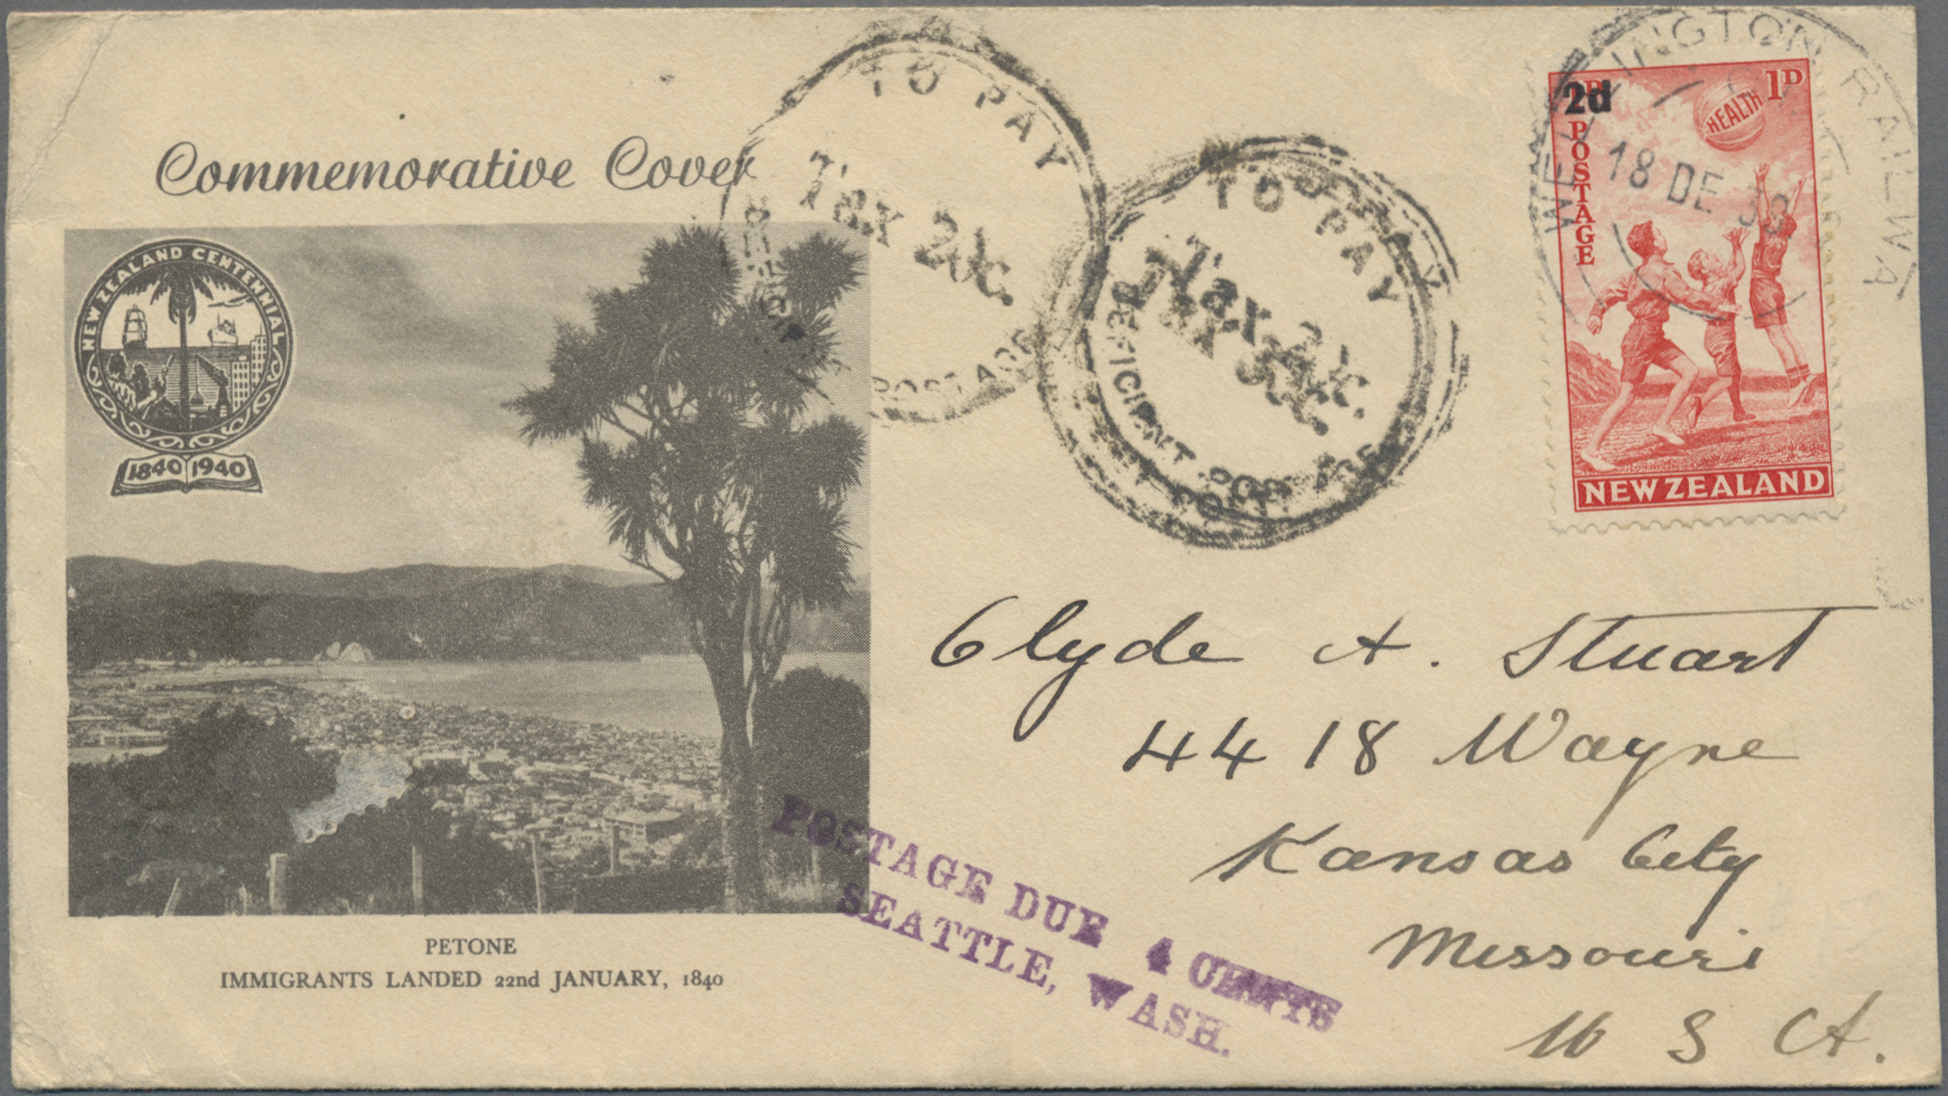 Commemorative Cover
NEW ZEALAND CENTENNIAL
1840 1940
PETONE
IMMIGRANTS LANDED 22nd JANUARY, 1840
TO PAY
Tax
POSTAGE
TO PAY
Tax
POSTAGE
WELLINGTON RAILWA
18 DE
2d
1D
POSTAGE
HEALTH
NEW ZEALAND
Clyde A. Stuart
4418 Wayne
Kansas City
Missouri
U S A.
POSTAGE DUE 4 CENTS
SEATTLE, WASH.